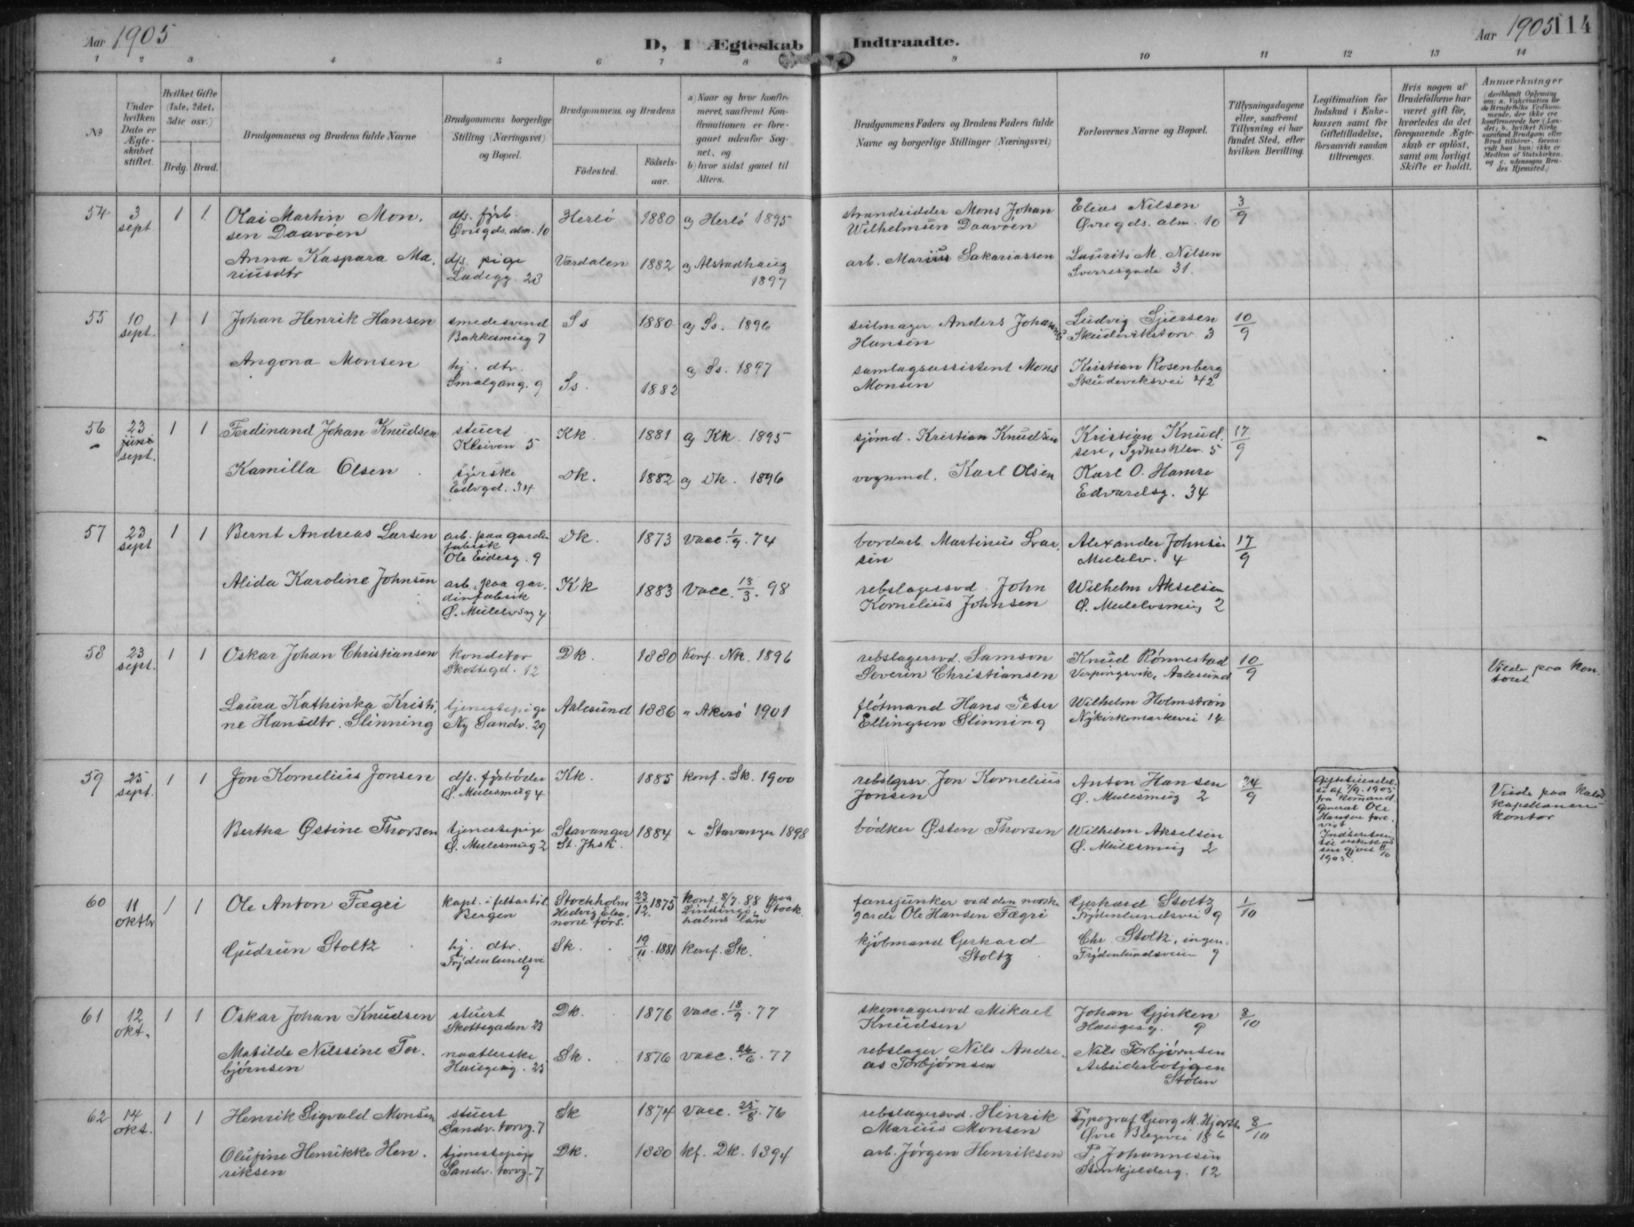 Aar 1905
D, I Ægteskab Indtraadte.
Aar 1905 114
1 2 3 4 5 6 7 8 9 10 11 12 13 14
No
Under hvilken Dato er Ægteskabet stiftet.
Hvilket Gifte (1ste, 2det, 3die osv.)
Brdg. Brud.
Brudgommens og Brudens fulde Navne
Brudgommens borgerlige Stilling (Næringsvei) og Bopæl.
Brudgommens og Brudens
Fødested.
Fødselsaar.
a) Naar og hvor konfirmeret, saafremt Konfirmationen er foregaaet udenfor Sognet, og
b) hvor sidst gaaet til Alters.
Brudgommens Faders og Brudens Faders fulde Navne og borgerlige Stillinger (Næringsvei)
Forlovernes Navne og Bopæl.
Tillysningsdagene eller, saafremt Tillysning ei har fundet Sted, efter hvilken Bevilling.
Legitimation for Indskud i Enkekassen samt for Giftetilladelse, forsaavidt saadan tiltrænges.
Hvis nogen af Brudefolkene har været gift før, hvorledes da det foregaaende Ægteskab er opløst, samt om lovligt Skifte er holdt.
Anmærkninger
54 3 sept 1 1 Olai Martin Monsen Daavøen d/s. fyrb. Øvregds. alm. 10 Herlö 1880 a) Herlö 1895 strandsidder Mons Johan Wilhelmsen Daavöen Elias Nilsen Øvregds. alm. 10 3/9
Anna Kaspara Mariusdtr d/s. pige Ladegg. 23 Værdalen 1882 a) Alstadhaug 1897 arb. Marius Sakariassen Laurits M. Nilsen Sverresgade 31.
55 10 sept. 1 1 Johan Henrik Hansen smedesvend Bakkesmug 7 Ss 1880 a) Ss. 1896 seilmager Anders Johannes Hansen Ludvig Sjursen Skudevikstorv 3 10/9
Angona Monsen hj. dtr. Smalgang. 9 Ss. 1882 a) Ss. 1897 samlagsassistent Mons Monsen Kristian Rosenberg Skudeviksvei 42
56 23 juni sept. 1 1 Ferdinand Johan Knudsen stuert Kleiven 5 Kk. 1881 a) Kk. 1895 sjömd. Kristian Knudsen Kristian Knudsen, Sydnesklev. 5 17/9
Kamilla Olsen syerske Edvgd. 34 Dk. 1882 a) Dk. 1896 vognmd. Karl Olsen Karl O. Hamre Edvardsg. 34
57 23 sept 1 1 Bernt Andreas Larsen arb. paa gardinfabrik Ole Eidesg. 9 Dk. 1873 vacc. 1/9. 74 bordarb Martinus Larsen Alexander Johnsen Mulelv. 4 17/9
Alida Karoline Johnsen arb. paa gardinfabrik Ø. Mulelvsmg 4 Kk 1883 Vacc. 13/3. 98 rebslagersvd John Kornelius Johnsen Wilhelm Akselsen Ø. Mulelvsmug 2
58 23 sept. 1 1 Oskar Johan Christiansen konditor Skottegd. 12 Dk. 1880 Konf. Nk. 1896 rebslagersvd. Samson Severin Christiansen Knud Rønnestad Verpingsvik, Aalesund 10/9 Viede paa kontoret
Laura Kathinka Kristine Hansdtr. Slinning tjenestepige Ny Sandv. 29 Aalesund 1886 " Akerö 1901 flötmand Hans Peter Ellingsen Slinning Wilhelm Holmström Nykirkemarkevei 14
59 25 sept. 1 1 Jon Kornelius Jonsen d/s. fyrböder Ø. Mulesmug 4 Kk. 1885 konf. Sk. 1900 rebslgrsv. Jon Kornelius Jonsen Anton Hansen Ø. Mulesmug 2 24/9 1905 fra Komand. General Ole Hansen 1905. Viede paa kontor
Bertha Østine Thorsen tjenestepige Ø. Mulesmug 2 Stavanger St. Jhsk. 1884 " Stavanger 1898 bödker Østen Thorsen Wilhelm Akselsen Ø. Mulesmug 2
60 11 oktbr 1 1 Ole Anton Fægri kapt. i feltartil. Bergen Stockholm Hedvig Eleonore förs. 23/12. 1875 konf. 8/7. 88 paa Lindingö Stockholms län fanejunker ved den norske garde Ole Hansen Fægri Gerhard Stoltz Frydenlundsvei 9 1/10
Gudrun Stoltz hj. dtr. Frydenlundsvei 9 Sk. 19/11. 1881 konf. Sk. kjöbmand Gerhard Stoltz Chr. Stoltz, ingen. Frydenlundsveien 9
61 12 okt. 1 1 Oskar Johan Knudsen stuert Skottegaden 23 Dk. 1876 vacc. 18/9. 77 skomagersvd Mikael Knudsen Johan Gjerken Haugesg. 9 8/10
Matilde Nilssine Torbjørnsen naatlerske Haugesg. 23 Sk. 1876 vacc. 26/6. 77 rebslager Nils Andreas Torbjørnsen Nils Torbjørnsen Arbeiderboligen Stölen
62 14 okt. 1 1 Henrik Sigvald Monsen stuert Sandv. torvg. 7 Sk 1874 Vacc. 25/8. 76 rebslagersvd. Henrik Marius Monsen Typograf Georg M. Hjorth Øvre Blegevei 18 b 8/10
Olufine Henrikke Henriksen tjenestepige Sandv. torvg. 7 Dk. 1880 kf. Dk. 1894 arb. Jörgen Henriksen P. Johannesen Stenkjelderg. 12